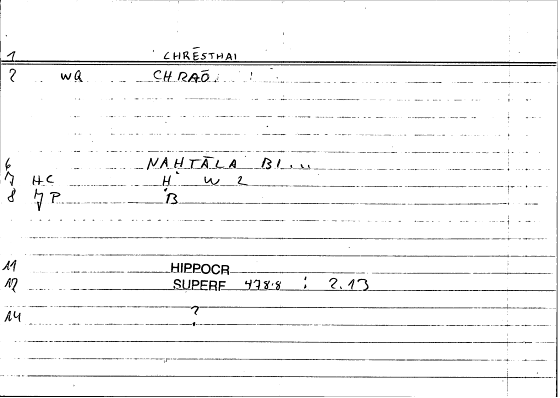 1 CHRĒSTHAI
2 WQ CHRAŌ
6 NAHTĀLA BI...
7 HC Ḥ W 2
8 7P Ḅ
11 HIPPOCR
12 SUPERF 478.8 : 2.13
14 ?